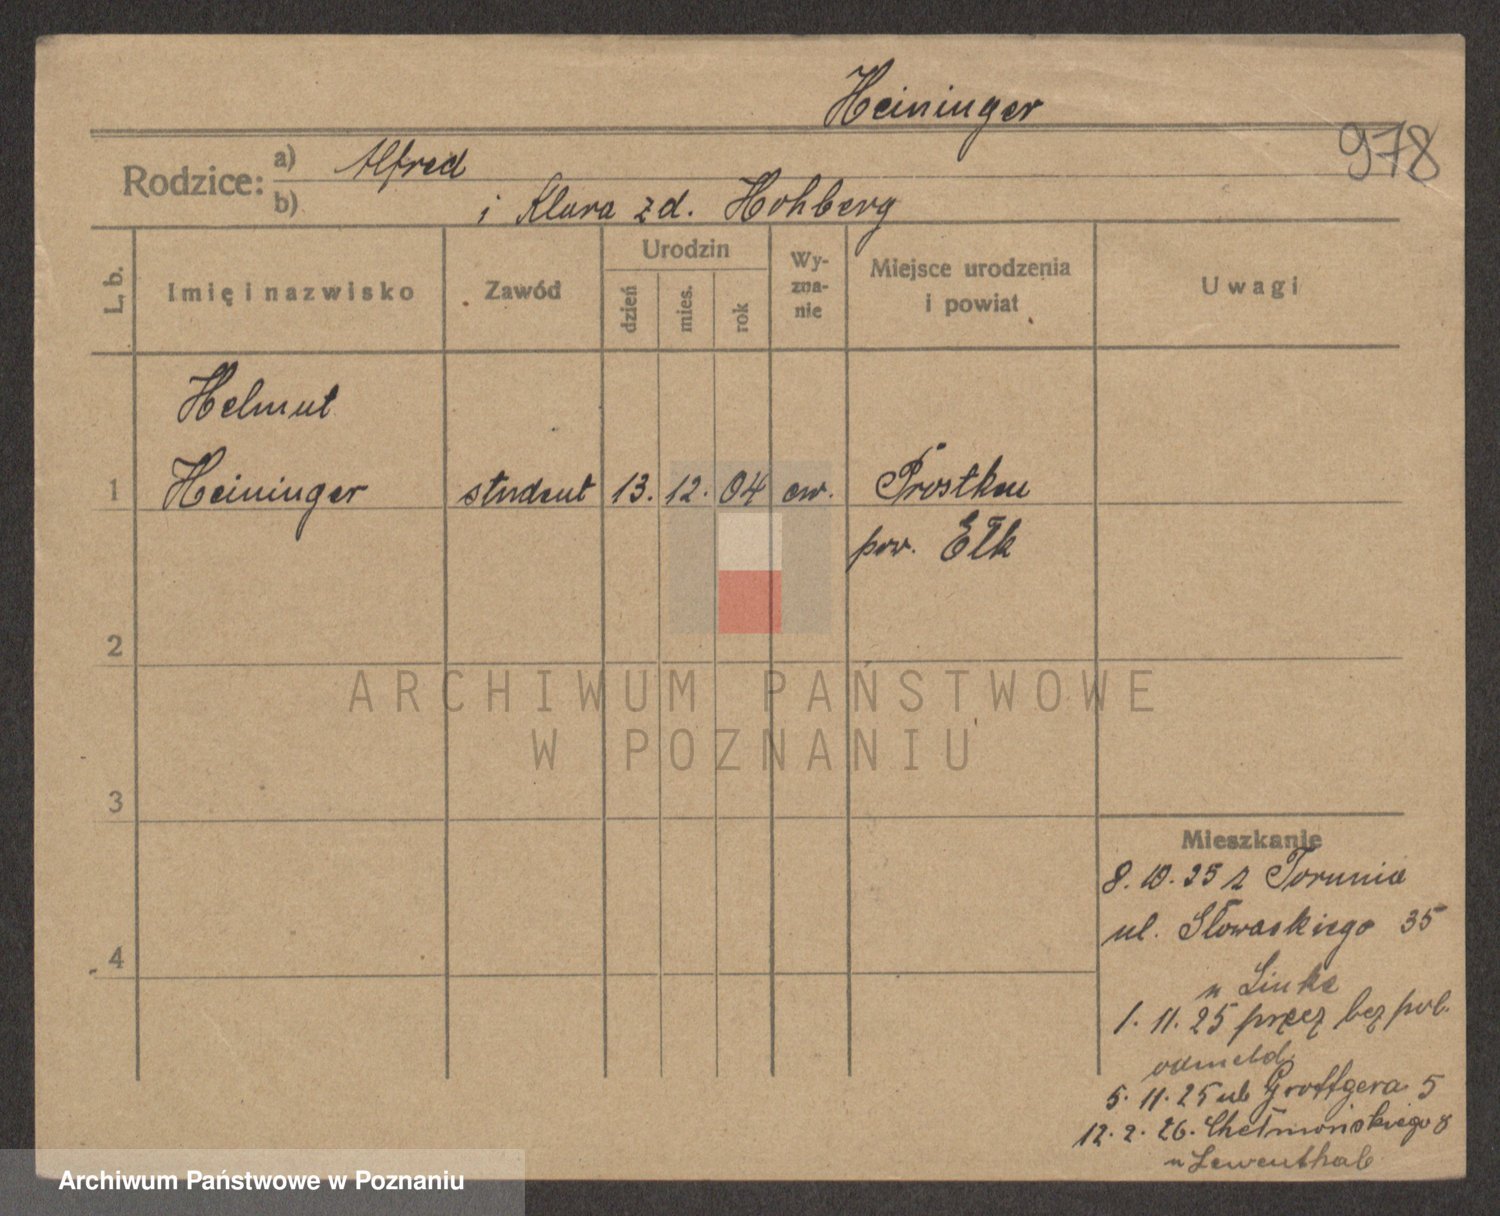 Heininger
978
Rodzice: a) Alfred
b) i Klara zd. Hohberg
L. b. Imię i nazwisko Zawód Urodzin dzień mies. rok Wy-zna-nie Miejsce urodzenia i powiat Uwagi
Helmut
1 Heininger student 13. 12. 04 ew. Prostken
pow. Ełk
2
ARCHIWUM PAŃSTWOWE
W POZNANIU
3
Mieszkanie
8. 10. 25 z Torunia
ul. Słowackiego 35
4
u Linke
1. 11. 25 precz bez pol.
odmeld.
5. 11. 25 ul. Grottgera 5
12. 2. 26. Chełmońskiego 8
u Lewenthal
Archiwum Państwowe w Poznaniu